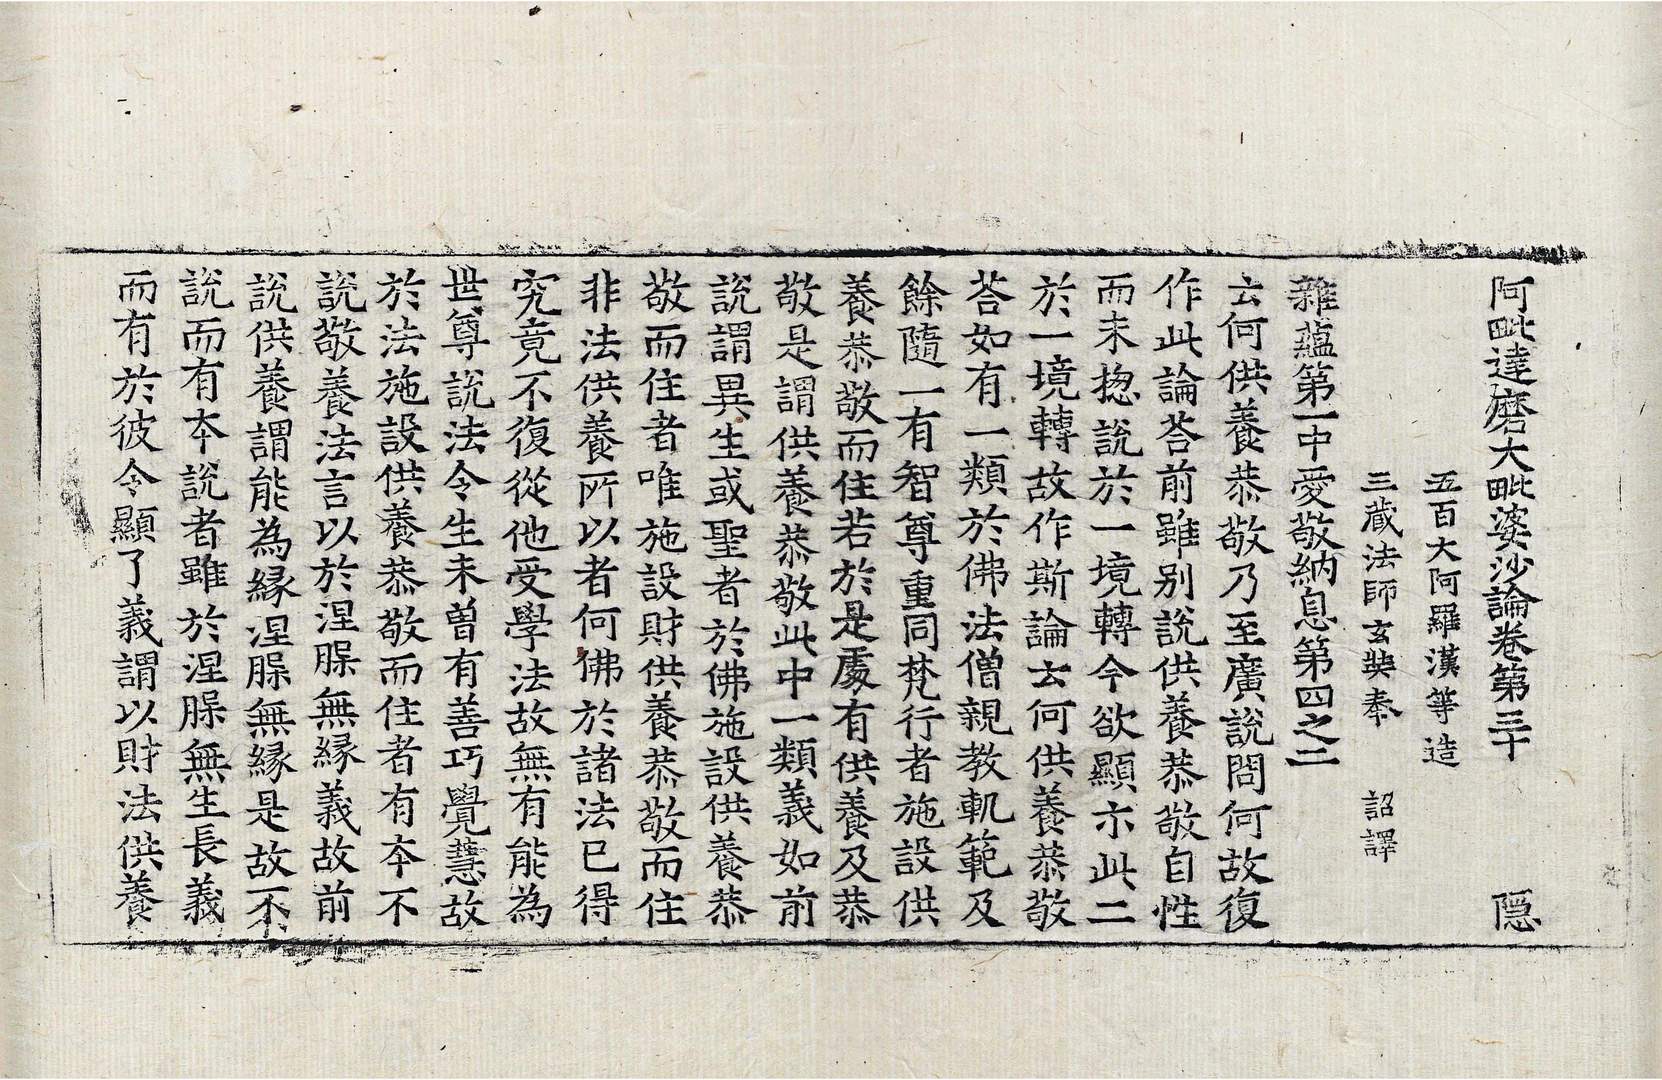 阿毗達磨大毗婆沙論卷第三十 隱
五百大阿羅漢等造
三藏法師玄奘奉 詔譯
雜蘊第一中愛敬納息第四之二
云何供養恭敬乃至廣說問何故復
作此論荅前雖別說供養恭敬自性
而未揔說於一境轉今欲顯示此二
於一境轉故作斯論云何供養恭敬
荅如有一類於佛法僧親教軌範及
餘隨一有智尊重同梵行者施設供
養恭敬而住若於是處有供養及恭
敬是謂供養恭敬此中一類義如前
說謂異生或聖者於佛施設供養恭
敬而住者唯施設財供養恭敬而住
非法供養所以者何佛於諸法已得
究竟不復從他受學法故無有能為
世尊說法令生未曾有善巧覺慧故
於法施設供養恭敬而住者有本不
說敬養法言以於涅槃無緣義故前
說供養謂能為緣涅槃無緣是故不
說而有本說者雖於涅槃無生長義
而有於彼令顯了義謂以財法供養